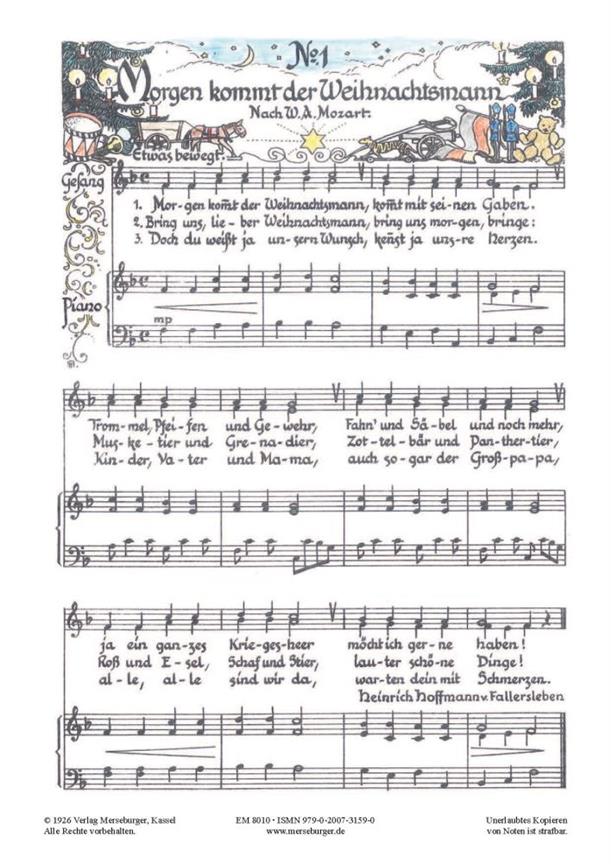 No. 1
Morgen kommt der Weihnachtsmann
Nach W. A. Mozart.
Etwas bewegt.
Gesang
1. Mor-gen kom̄t der Weihnachtsmann, kom̄t mit sei-nen Gaben.
2. Bring uns, lie-ber Weihnachtsmann, bring uns mor-gen, bringe:
3. Doch du weißt ja un-sern Wunsch, ken̄st ja uns-re Herzen.
Piano
mp
Trom-mel, Pfei-fen und Ge-wehr, Fahn' und Sä-bel und noch mehr,
Mus-ke-tier und Gre-na-dier, Zot-tel-bär und Pan-ther-tier,
Kin-der, Va-ter und Ma-ma, auch so-gar der Groß-pa-pa,
ja ein gan-zes Krie-ges-heer möcht ich ger-ne haben!
Roß und E-sel, Schaf und Stier, lau-ter schö-ne Dinge!
al-le, al-le sind wir da, war-ten dein mit Schmerzen.
Heinrich Hoffmann v. Fallersleben
© 1926 Verlag Merseburger, Kassel
Alle Rechte vorbehalten.
EM 8010 • ISMN 979-0-2007-3159-0
www.merseburger.de
Unerlaubtes Kopieren
von Noten ist strafbar.